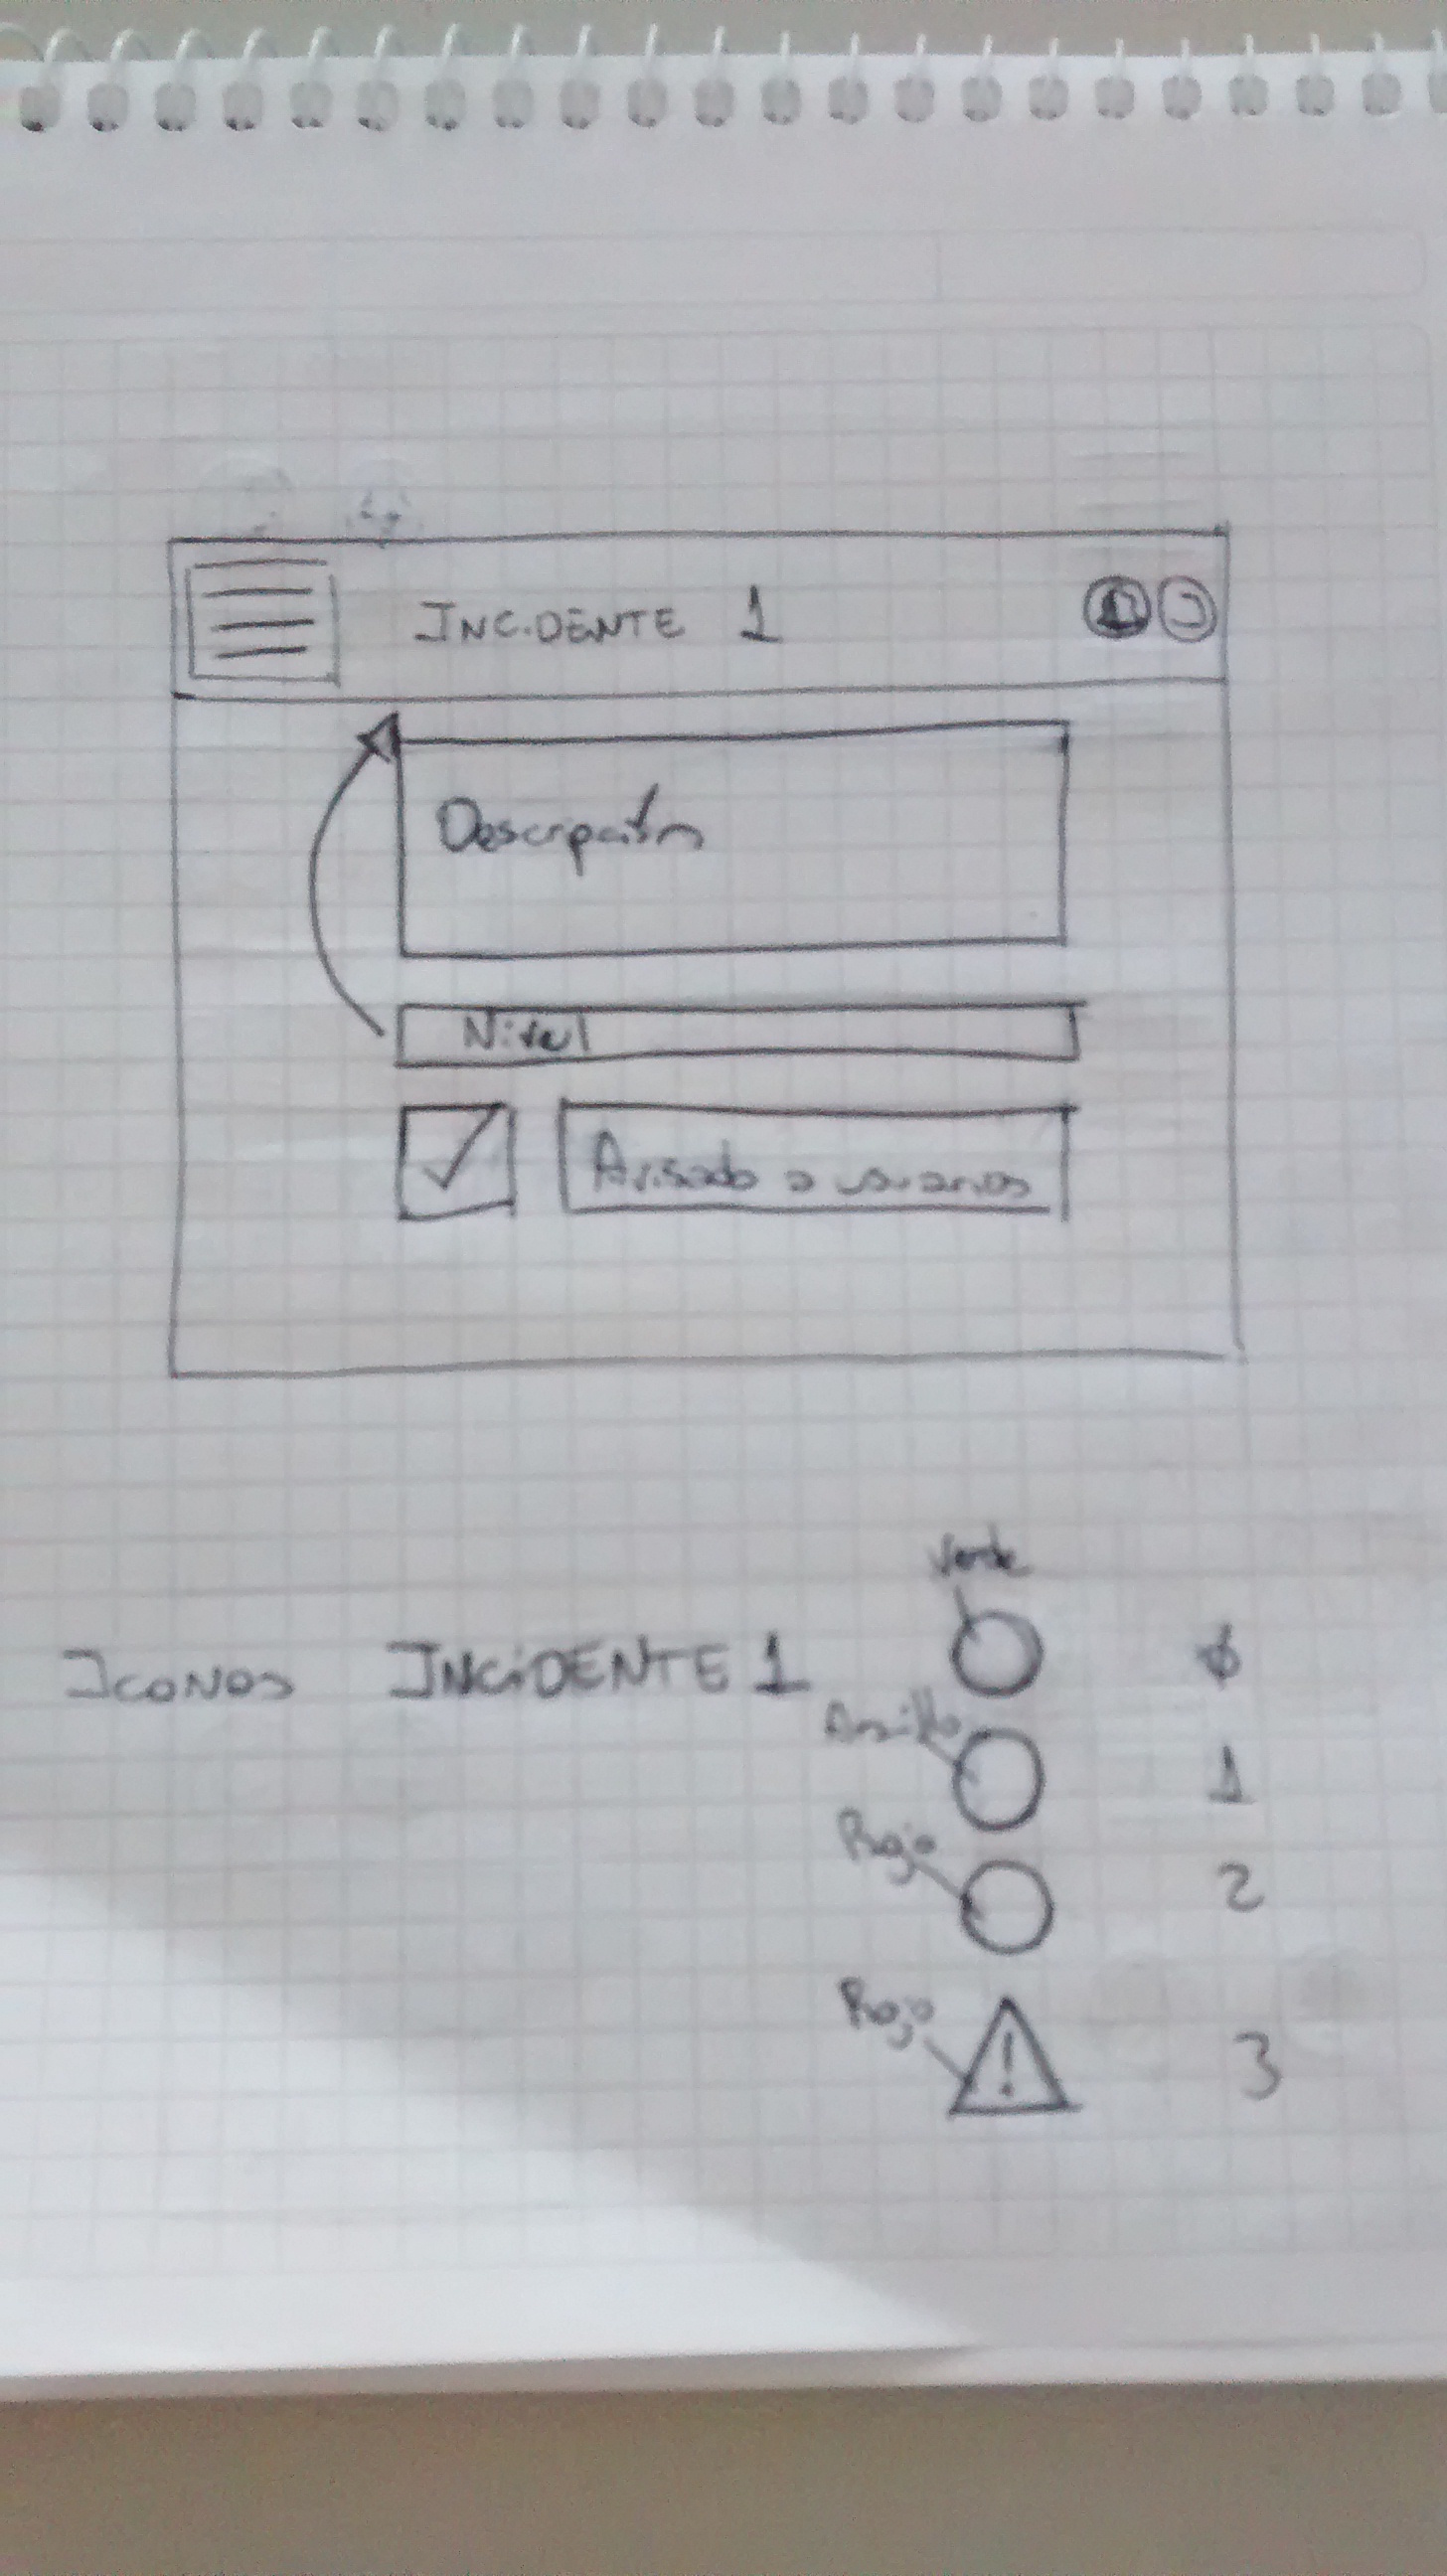 INCIDENTE 1
Descripción
Nivel
Avisado a usuarios
Verde
Iconos INCiDENTE 1 0
Amarillo
1
Rojo
2
Rojo
! 3